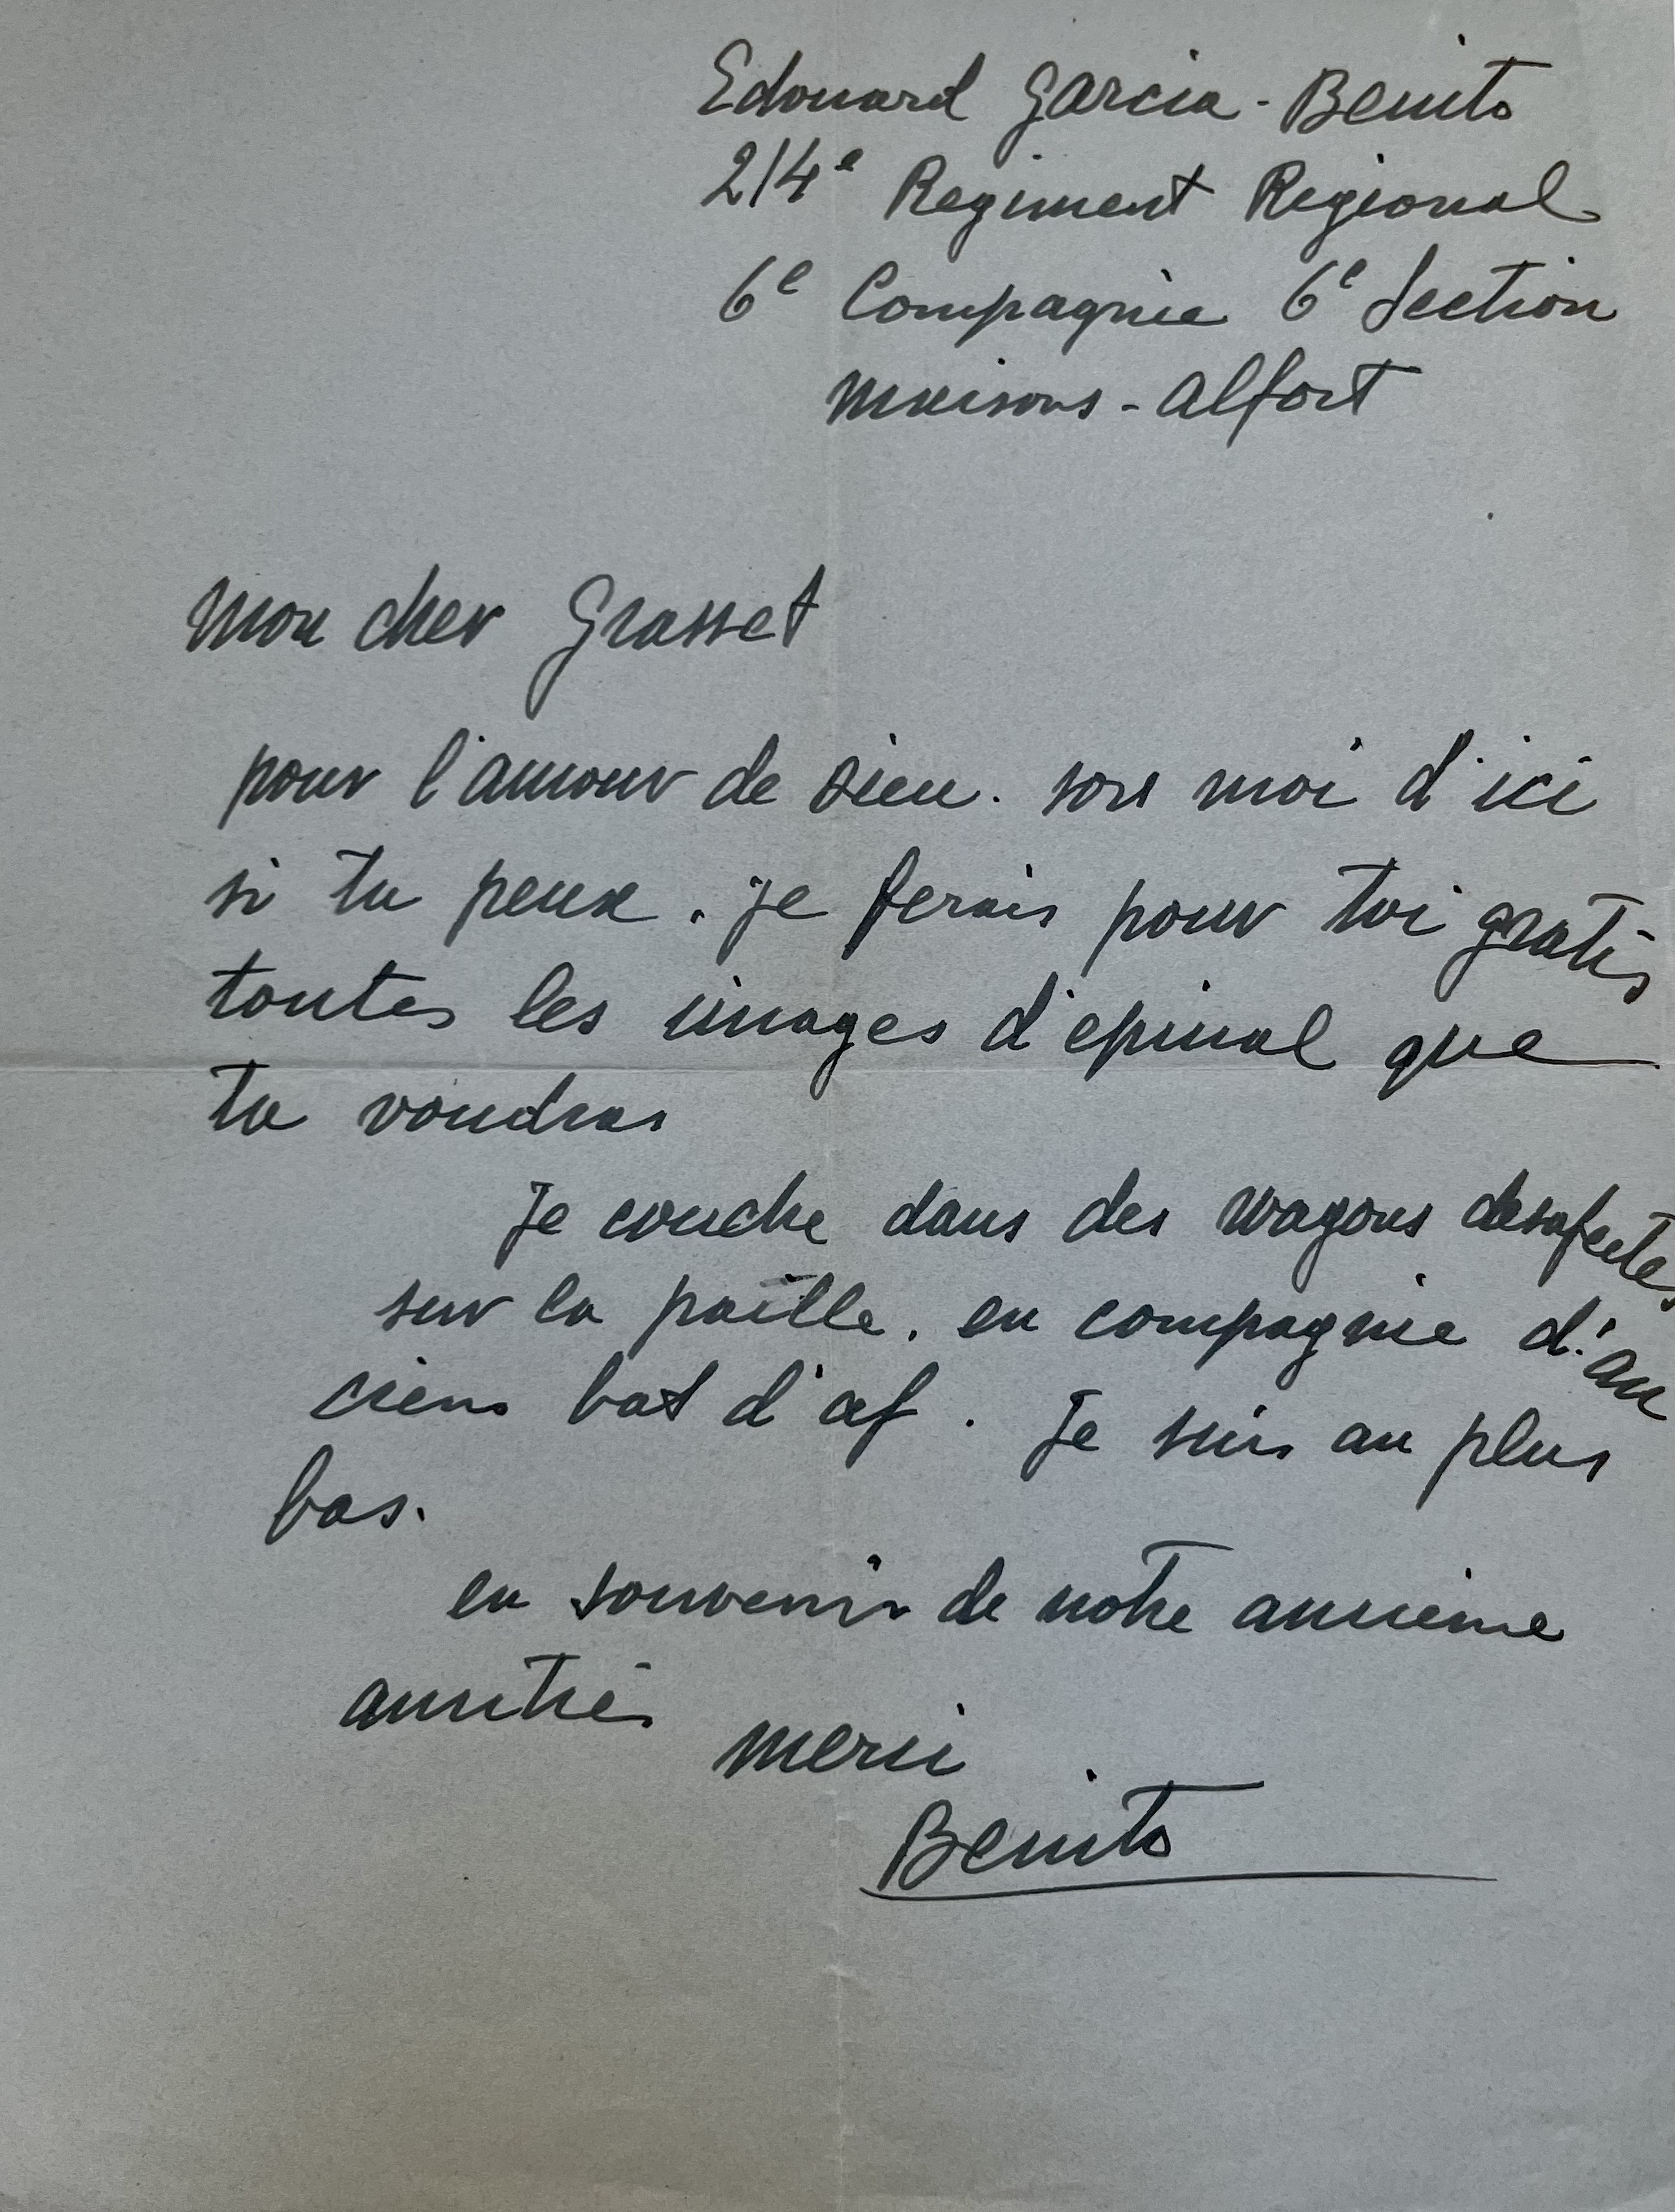 Edouard Garcia-Benito
214e Regiment Regional
6e Compagnie 6e Section
maisons-alfort
mon cher Grasset
pour l'amour de Dieu. sors moi d'ici
si tu peux. je ferais pour toi gratis
toutes les images d'epinal que
tu voudras
Je couche dans des wagons desafectes
sur la paille. en compagnie d'an
ciens bat d'af. Je suis au plus
bas.
en souvenir de notre ancienne
amitié
merci
Benito